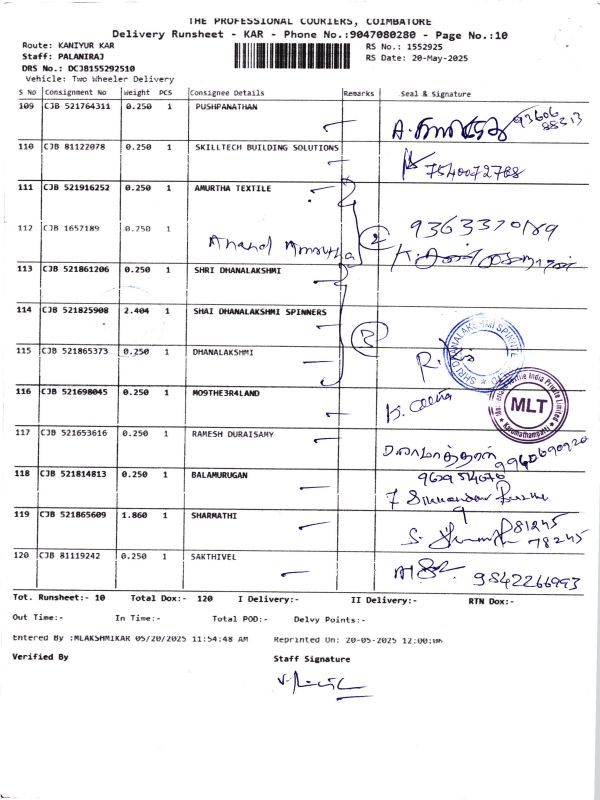 THE PROFESSIONAL COURIERS, COIMBATORE
Delivery Runsheet - KAR - Phone No.:9047080280 - Page No.:10
Route: KANIYUR KAR
RS No.: 1552925
Staff: PALANIRAJ
RS Date: 20-May-2025
DRS No.: DCJB155292510
Vehicle: Two Wheeler Delivery
S No Consignment No Weight PCS Consignee Details Remarks Seal & Signature
109 CJB 521764311 0.250 1 PUSHPANATHAN
110 CJB 81122078 0.250 1 SKILLTECH BUILDING SOLUTIONS
7540072788
111 CJB 521916252 0.250 1 AMURTHA TEXTILE
112 CJB 1657189 0.250 1
Anand Amrutha
2
9363370189
113 CJB 521861206 0.250 1 SHRI DHANALAKSHMI
114 CJB 521825908 2.404 1 SHAI DHANALAKSHMI SPINNERS
3
115 CJB 521865373 0.250 1 DHANALAKSHMI
116 CJB 521698045 0.250 1 MO9THE3R4LAND
MLT
Karumathampatti
117 CJB 521653616 0.250 1 RAMESH DURAISAMY
118 CJB 521814813 0.250 1 BALAMURUGAN
119 CJB 521865609 1.860 1 SHARMATHI
81245
78245
120 CJB 81119242 0.250 1 SAKTHIVEL
9842266993
Tot. Runsheet:- 10 Total Dox:- 120 I Delivery:- II Delivery:- RTN Dox:-
Out Time:- In Time:- Total POD:- Delvy Points:-
Entered By :MLAKSHMIKAR 05/20/2025 11:54:48 AM Reprinted On: 20-05-2025 12:00:
Verified By Staff Signature